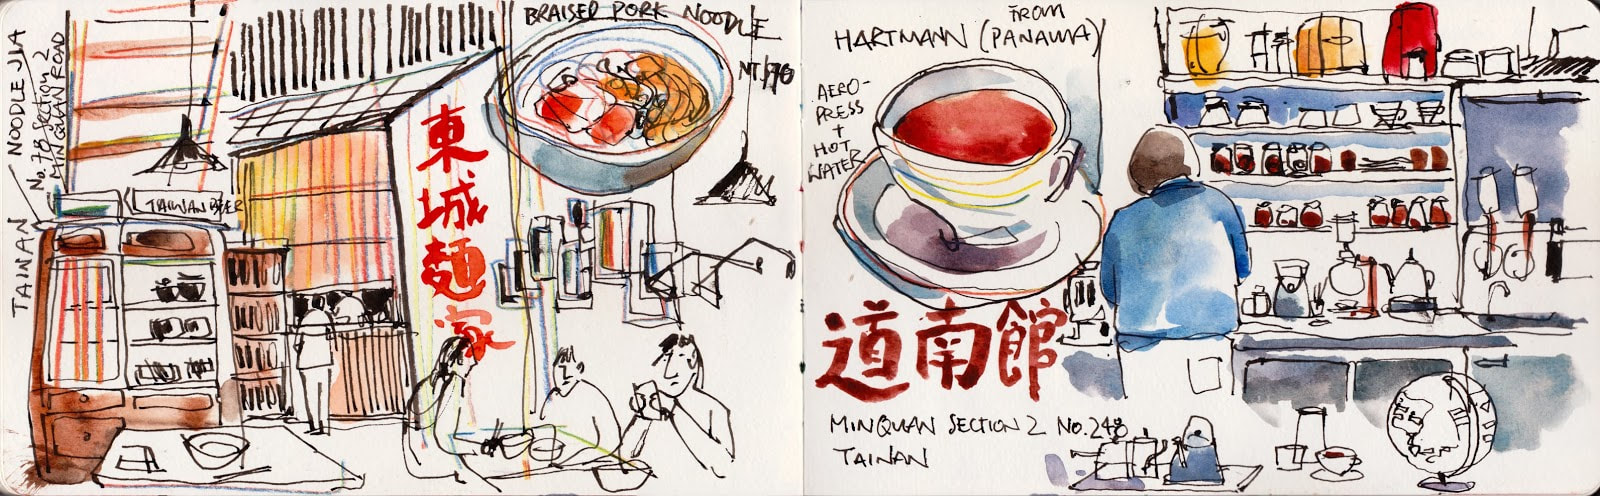 TAINAN
NOODLE JIA
No. 78 Section 2
MINQUAN ROAD
TAIWAN BEER
東城麵家
BRAISER PORK NOODLE
HARTMANN (PANAMA)
FROM
AERO-
PRESS
+
HOT
WATER
道南館
MINQUAN SECTION 2 No. 248
TAINAN